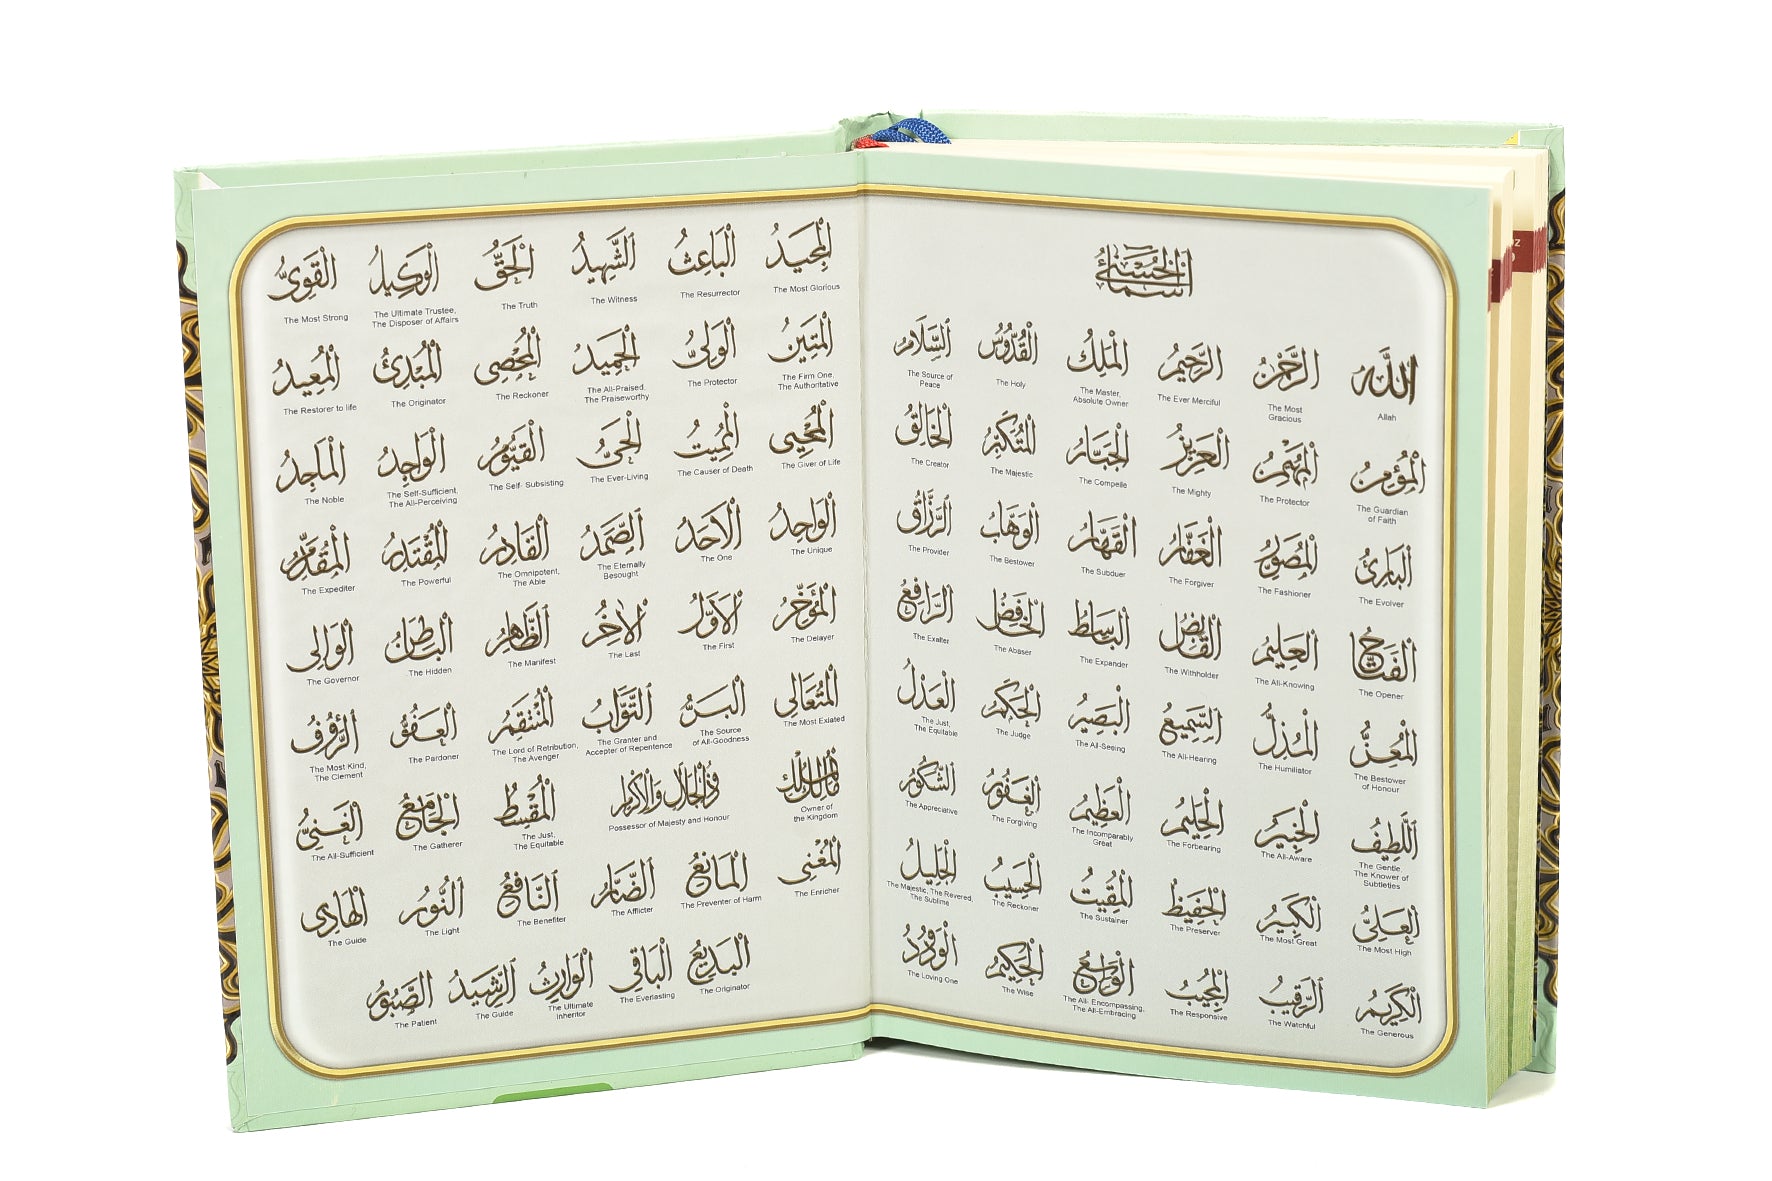 أسماء الحسنى
اللَّه
Allah
الرَّحْمٰنُ
The Most
Gracious
الرَّحِيْمُ
The Ever Merciful
الْمَلِكُ
The Master,
Absolute Owner
الْقُدُّوْسُ
The Holy
السَّلَامُ
The Source of
Peace
الْمُؤْمِنُ
The Guardian
of Faith
الْمُهَيْمِنُ
The Protector
الْعَزِيْزُ
The Mighty
الْجَبَّارُ
The Compelle
الْمُتَكَبِّرُ
The Majestic
الْخَالِقُ
The Creator
الْبَارِئُ
The Evolver
الْمُصَوِّرُ
The Fashioner
الْغَفَّارُ
The Forgiver
الْقَهَّارُ
The Subduer
الْوَهَّابُ
The Bestower
الرَّزَّاقُ
The Provider
الْفَتَّاحُ
The Opener
الْعَلِيْمُ
The All-Knowing
الْقَابِضُ
The Withholder
الْبَاسِطُ
The Expander
الْخَافِضُ
The Abaser
الرَّافِعُ
The Exalter
الْمُعِزُّ
The Bestower
of Honour
الْمُذِلُّ
The Humiliator
السَّمِيْعُ
The All-Hearing
الْبَصِيْرُ
The All-Seeing
الْحَكَمُ
The Judge
الْعَدْلُ
The Just,
The Equitable
اللَّطِيْفُ
The Gentle,
The Knower of
Subtleties
الْخَبِيْرُ
The All-Aware
الْحَلِيْمُ
The Forbearing
الْعَظِيْمُ
The Incomparably
Great
الْغَفُوْرُ
The Forgiving
الشَّكُوْرُ
The Appreciative
الْعَلِيُّ
The Most High
الْكَبِيْرُ
The Most Great
الْحَفِيْظُ
The Preserver
الْمُقِيْتُ
The Sustainer
الْحَسِيْبُ
The Reckoner
الْجَلِيْلُ
The Majestic, The Revered,
The Sublime
الْكَرِيْمُ
The Generous
الرَّقِيْبُ
The Watchful
الْمُجِيْبُ
The Responsive
الْوَاسِعُ
The All- Encompassing,
The All-Embracing
الْحَكِيْمُ
The Wise
الْوَدُوْدُ
The Loving One
الْمَجِيْدُ
The Most Glorious
الْبَاعِثُ
The Resurrector
الشَّهِيْدُ
The Witness
الْحَقُّ
The Truth
الْوَكِيْلُ
The Ultimate Trustee,
The Disposer of Affairs
الْقَوِىُّ
The Most Strong
الْمَتِيْنُ
The Firm One,
The Authoritative
الْوَلِىُّ
The Protector
الْحَمِيْدُ
The All-Praised,
The Praiseworthy
الْمُحْصِى
The Reckoner
الْمُبْدِئُ
The Originator
الْمُعِيْدُ
The Restorer to life
الْمُحْيِى
The Giver of Life
الْمُمِيْتُ
The Causer of Death
الْحَىُّ
The Ever-Living
الْقَيُّوْمُ
The Self- Subsisting
الْوَاجِدُ
The Self-Sufficient,
The All-Perceiving
الْمَاجِدُ
The Noble
الْوَاحِدُ
The Unique
الْاَحَدُ
The One
الصَّمَدُ
The Eternally
Besought
الْقَادِرُ
The Omnipotent,
The Able
الْمُقْتَدِرُ
The Powerful
الْمُقَدِّمُ
The Expediter
الْمُؤَخِّرُ
The Delayer
الْاَوَّلُ
The First
الْاٰخِرُ
The Last
الظَّاهِرُ
The Manifest
الْبَاطِنُ
The Hidden
الْوَالِى
The Governor
الْمُتَعَالِى
The Most Exlated
الْبَرُّ
The Source
of All-Goodness
التَّوَّابُ
The Granter and
Accepter of Repentence
الْمُنْتَقِمُ
The Lord of Retribution,
The Avenger
الْعَفُوُّ
The Pardoner
الرَّؤُوْفُ
The Most Kind,
The Clement
مَالِكُ الْمُلْكِ
Owner of
the Kingdom
ذُوالْجَلَالِ وَالْاِكْرَامِ
Possessor of Majesty and Honour
الْمُقْسِطُ
The Just,
The Equitable
الْجَامِعُ
The Gatherer
الْغَنِىُّ
The All-Sufficient
الْمُغْنِى
The Enricher
الْمَانِعُ
The Preventer of Harm
الضَّارُّ
The Afflicter
النَّافِعُ
The Benefiter
النُّوْرُ
The Light
الْهَادِى
The Guide
الْبَدِيْعُ
The Originator
الْبَاقِى
The Everlasting
الْوَارِثُ
The Ultimate
Inheritor
الرَّشِيْدُ
The Guide
الصَّبُوْرُ
The Patient